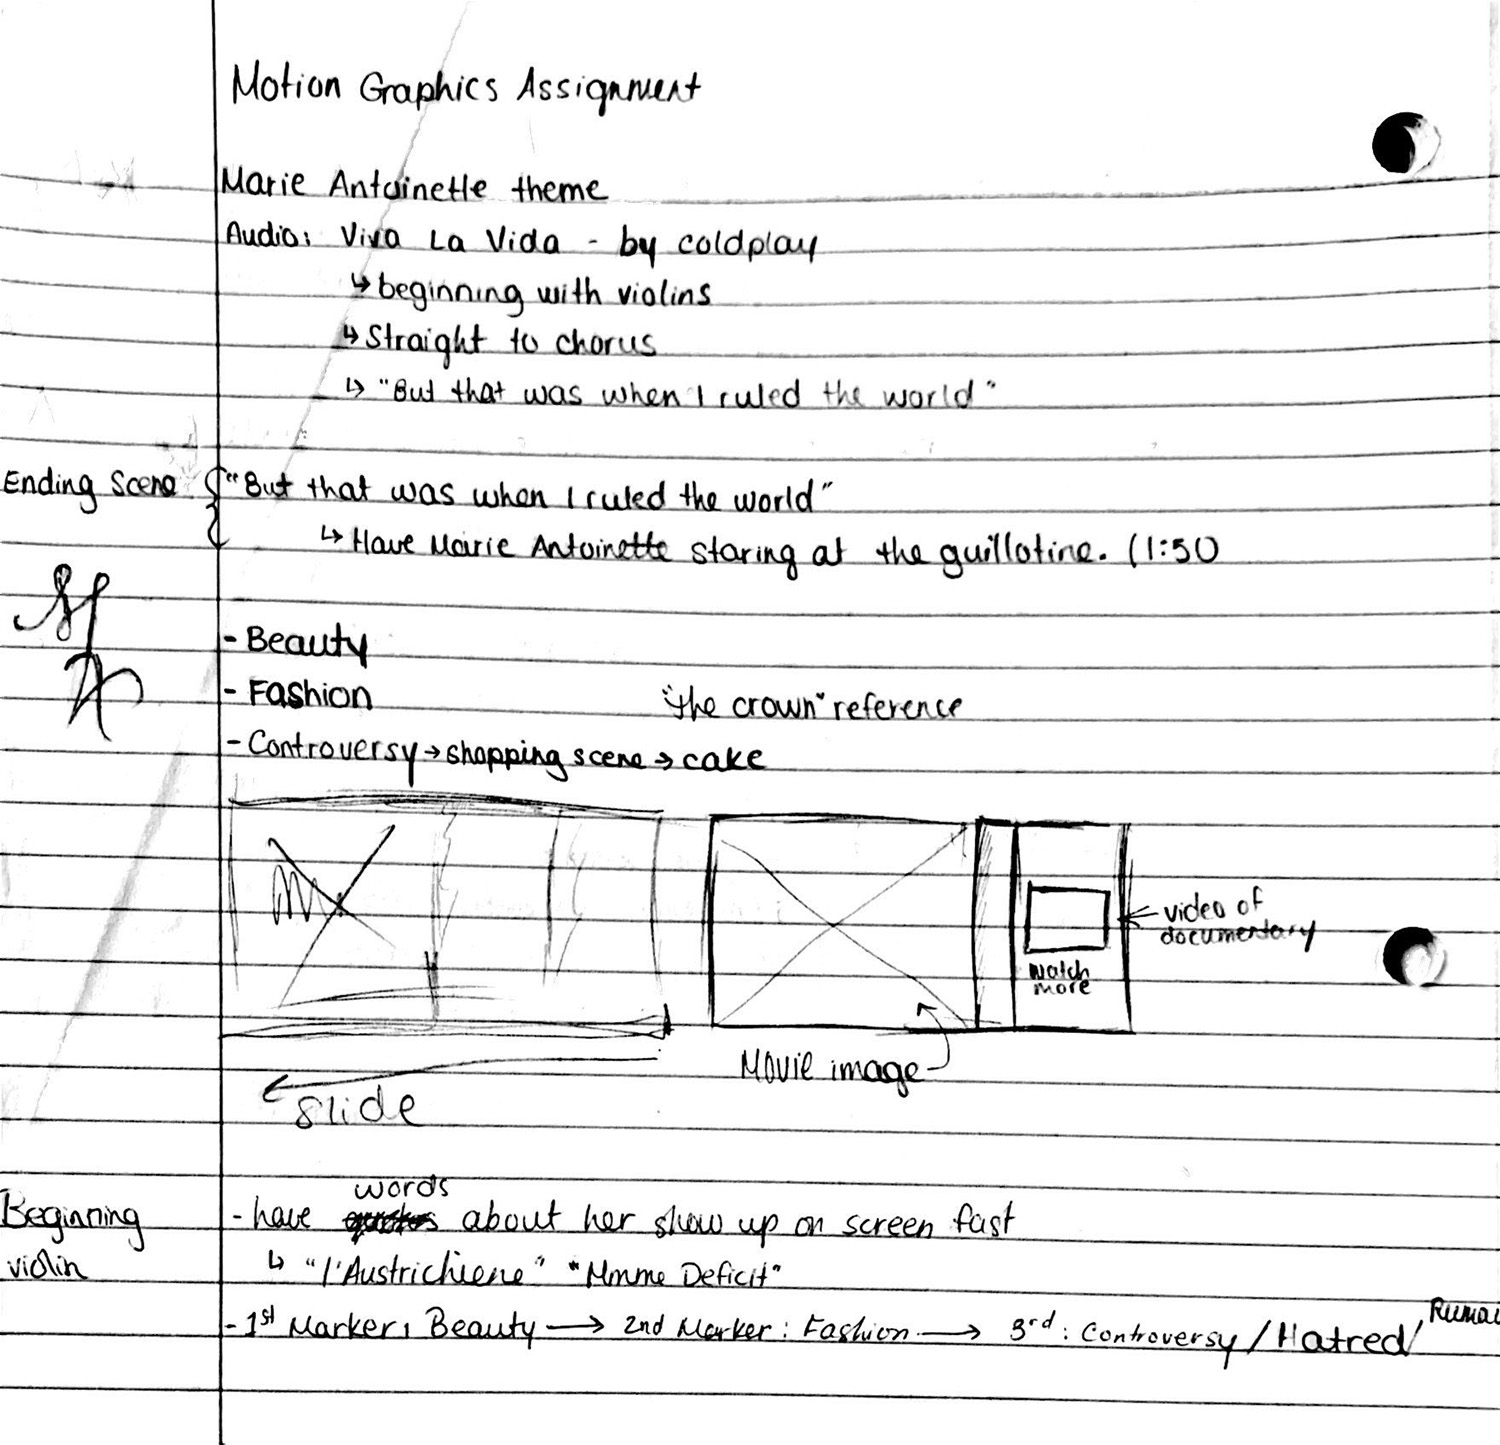 Motion Graphics Assignment
Marie Antoinette theme
Audio: Viva La Vida - by coldplay
↳ beginning with violins
↳ Straight to chorus
↳ "But that was when I ruled the world"
Ending Scene { "But that was when I ruled the world"
↳ Have Marie Antoinette staring at the guillotine. (1:50
- Beauty
- Fashion
"the crown" reference
- Controversy → shopping scene → cake
video of
documentary
watch
more
Movie image
slide
Beginning
violin
words
- have about her show up on screen fast
↳ "l'Austrichiene" "Mmme Deficit"
- 1st Marker: Beauty → 2nd Marker: Fashion → 3rd: Controversy / Hatred /